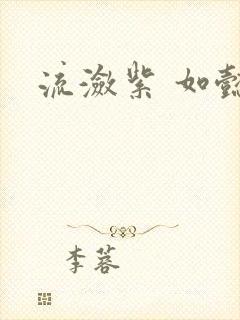 流潋紫 如懿
李蓉